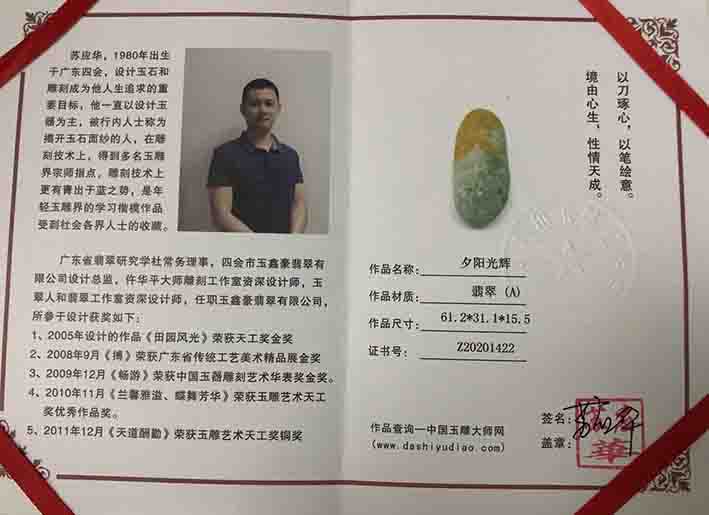 苏应华，1980年出生
于广东四会，设计玉石和
雕刻成为他人生追求的重
要目标，他一直以设计玉
器为主，被行内人士称为
揭开玉石面纱的人，在雕
刻技术上，得到多名玉雕
界宗师指点，雕刻技术上
更有青出于蓝之势，是年
轻玉雕界的学习楷模作品
受到社会各界人士的收藏。
广东省翡翠研究学社常务理事，四会市玉鑫豪翡翠有
限公司设计总监，仵华平大师雕刻工作室资深设计师，玉
翠人和翡翠工作室资深设计师，任职玉鑫豪翡翠有限公司，
所参于设计获奖如下：
1、2005年设计的作品《田园风光》荣获天工奖金奖
2、2008年9月《搏》荣获广东省传统工艺美术精品展金奖
3、2009年12月《畅游》荣获中国玉器雕刻艺术华表奖金奖。
4、2010年11月《兰馨雅溢、蝶舞芳华》荣获玉雕艺术天工
奖优秀作品奖。
5、2011年12月《天道酬勤》荣获玉雕艺术天工奖铜奖
以刀琢心，以笔绘意。
境由心生，性情天成。
作品名称：夕阳光辉
作品材质：翡翠 (A)
作品尺寸：61.2*31.1*15.5
证书号：Z20201422
作品查询—中国玉雕大师网
(www.dashiyudiao.com)
签名：
盖章：
華